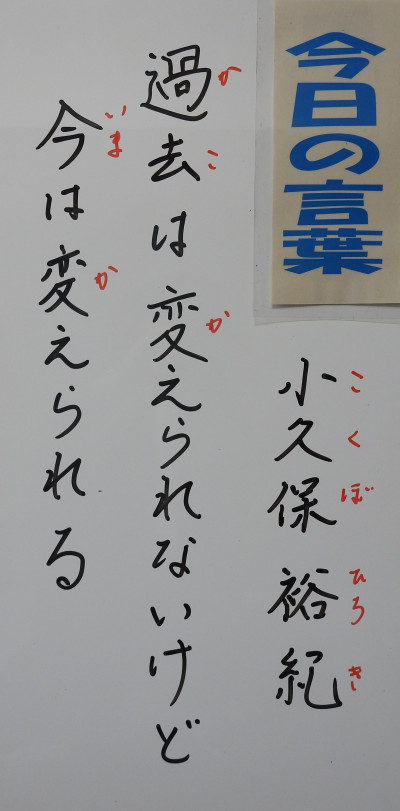 今日の言葉
小久保裕紀
こくぼひろき
過去は変えられないけど
かこか
今は変えられる
いまか